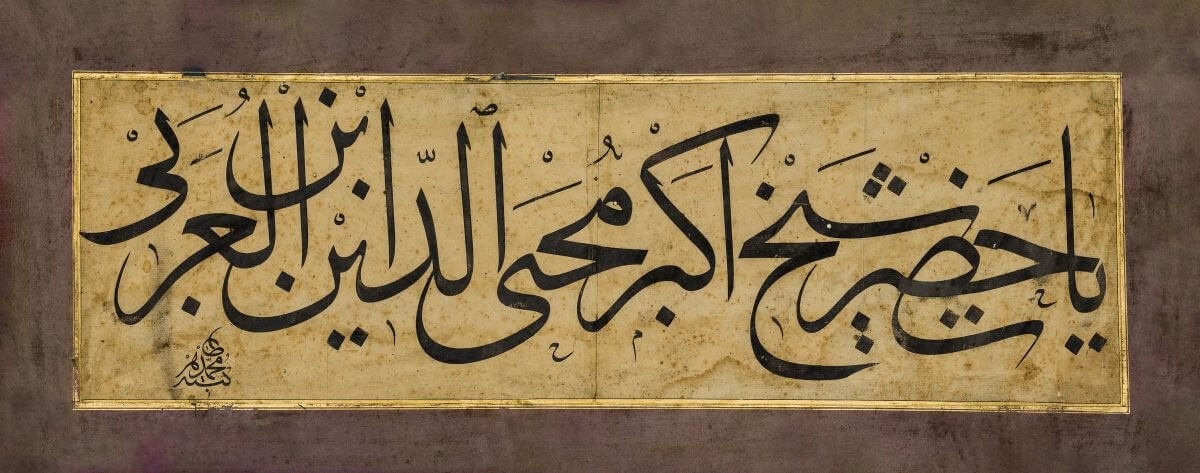 يا حضرت شيخ اكبر محيى الدين ابن العربي
كتبه محمد طاهر